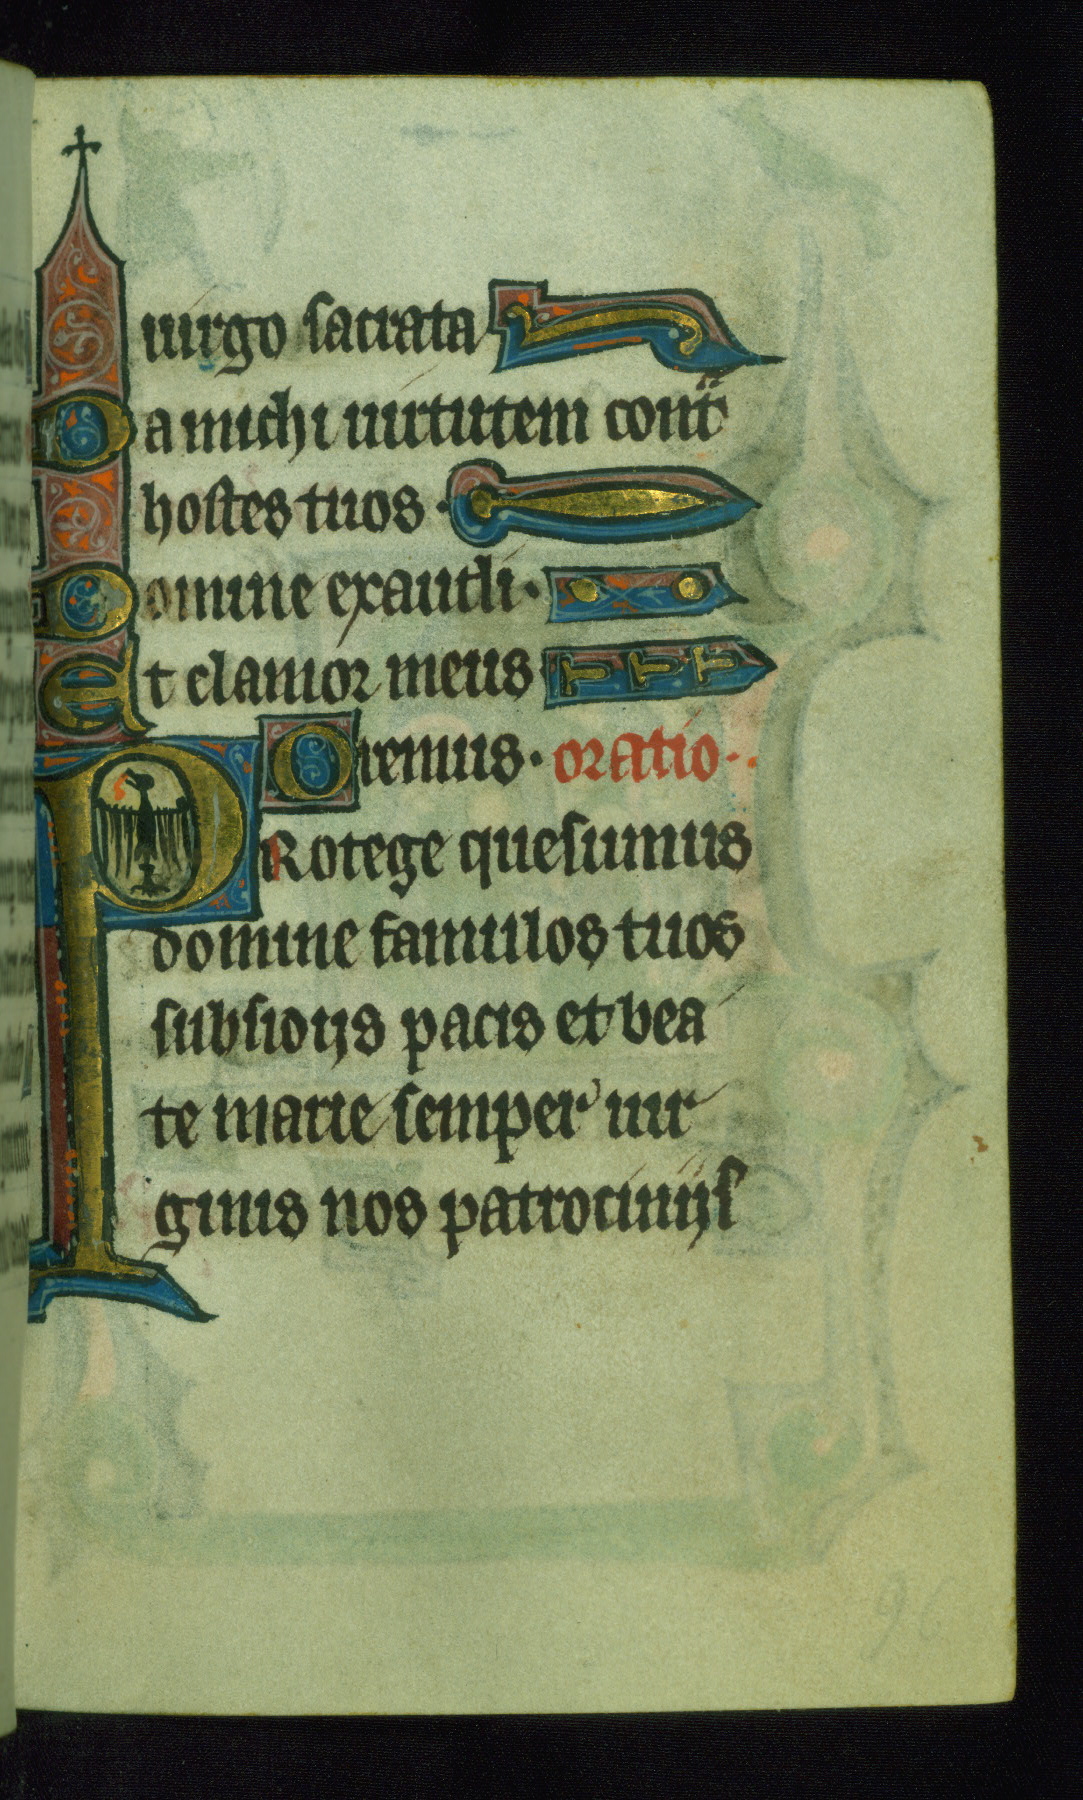 uirgo sacrata
Da michi uirtutem cont̄
hostes tuos ·
Domine exaudi ·
Et clamor meus
Oremus · oratio ·
PRotege quesumus
domine famulos tuos
subsidijs pacis et bea
te marie semper uir
ginis nos patrocinijs
96